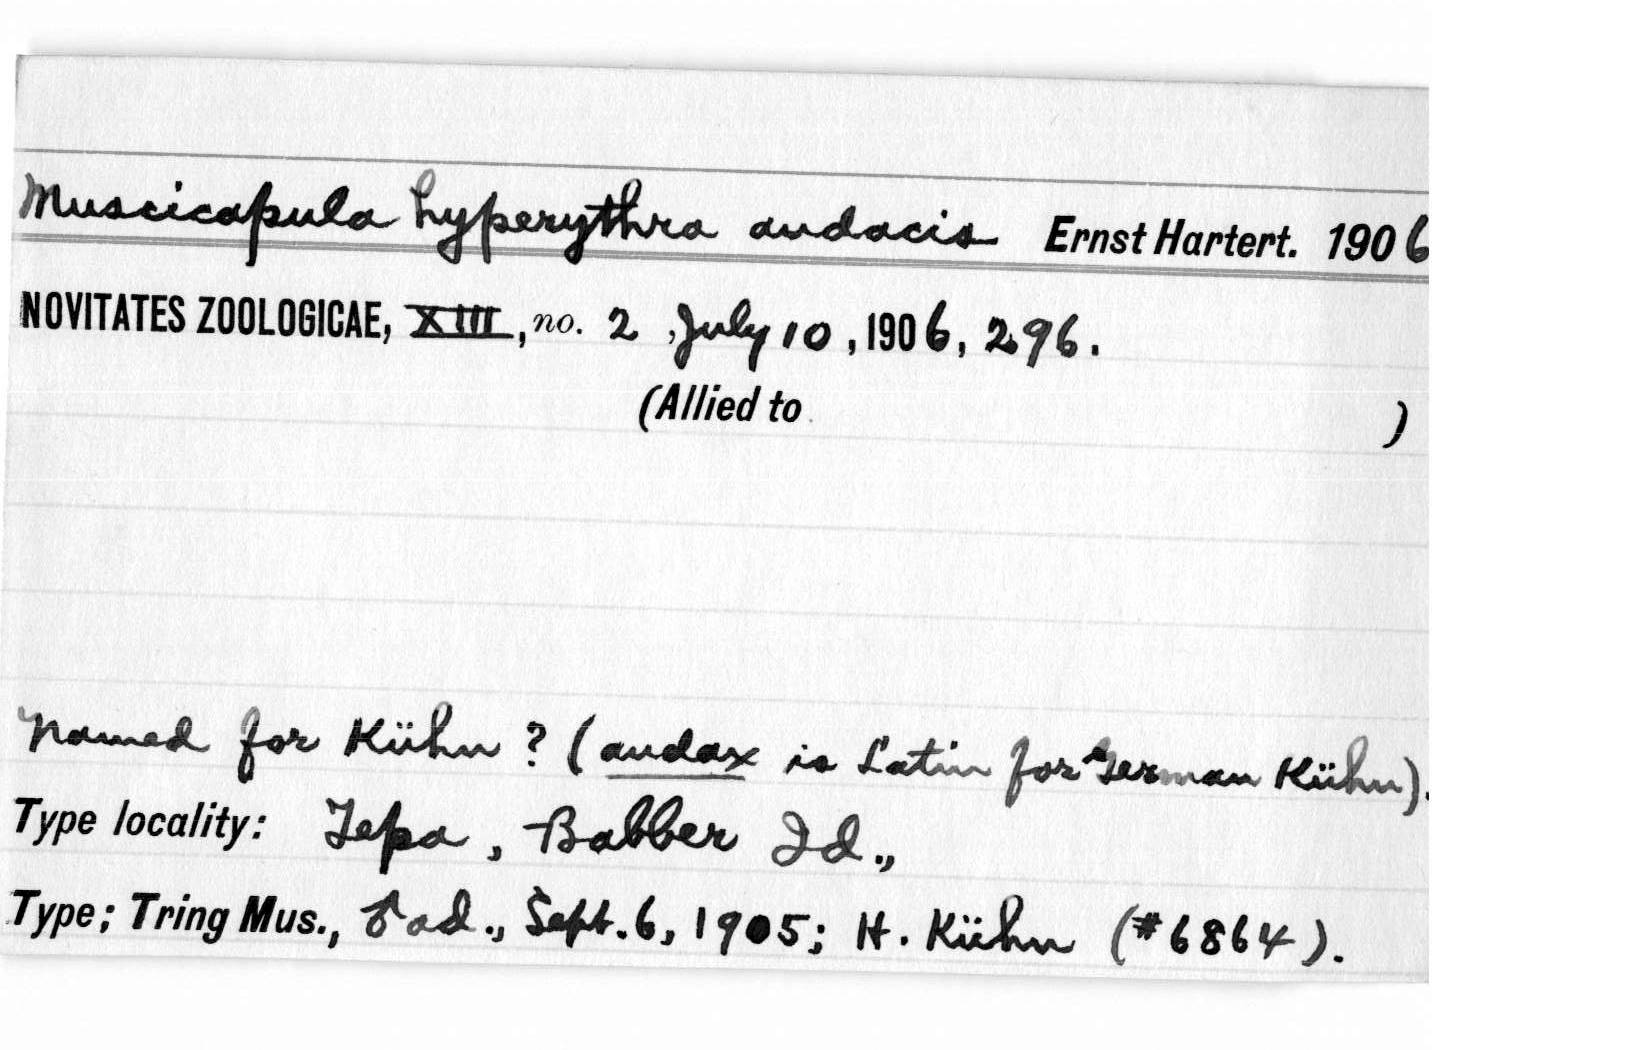 Muscicapula hyperythra audacis Ernst Hartert. 1906
NOVITATES ZOOLOGICAE, XIII, no. 2, July 10, 1906, 296.
(Allied to )
Named for Kühn? (audax is Latin for German Kühn).
Type locality: Tepa, Babber Id.,
Type; Tring Mus., ♂ ad., Sept. 6, 1905; H. Kühn (#6864).